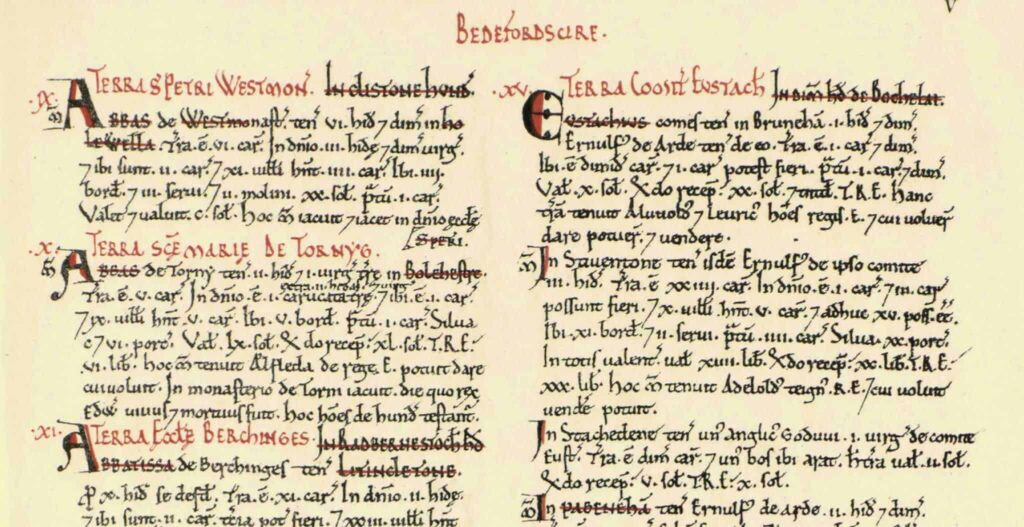 V
BEDEFORDSCIRE.
.IX. TERRA S PETRI WESTMON. IN CLISTONE HUND.
M ABBAS de Westmonast. ten .VI. hid 7 dim in ho
lewella. Tra. e .VI. car. In dnio .III. hide 7 dim virg.
7 ibi sunt .II. car. 7 XI. uilli hnt .IIII. car. Ibi .IIII.
bord. 7 III. serui. 7 II. molini. XX. sol. ptu .I. car.
Valet 7 ualuit .C. sol. Hoc M iacuit 7 iacet in dnio eccle
S PETRI.
.X. TERRA SCE MARIE DE TORNYG.
M ABBAS de Torny ten .II. hid 7 I. uirg tre in Bolehestre.
extra .II. hid 7 I. uirg
Tra. e .V. car. In dnio. e .I. carucata tre. 7 ibi. e .I. car.
7 IX. uilli hnt .V. car. Ibi .V. bord. ptu .I. car. Silua
C 7 VI. porc. Val. LX. sol. Qdo recep. XL. sol. T.R.E.
VI. lib. Hoc M tenuit Alfleda de rege. E. potuit dare
cui uoluit. In monasterio de Torni iacuit. die quo rex
Eduu uiuus 7 mortuus fuit. hoc hoes de hund testant.
.XI. TERRA ECCLE BERCHINGES. IN RADBERNESTOCH HD
ABBATISSA de Berchinges ten LITINCLETONE.
p X. hid se defd. Tra. e .XI. car. In dnio .II. hide.
7 ibi sunt .II. car. tcia pot fieri. 7 XXIII. uilli hnt
.XV. TERRA COMIT EUSTACH IN DIM HD DE BOCHELAI.
EUSTACHIUS comes ten in Bruneha .I. hid 7 dim.
Ernulf de Arde ten de eo. Tra. e .I. car. 7 dim.
Ibi. e dimid car. 7 I. car potest fieri. ptu .I. car. 7 dim.
Val. X. sol. Qdo recep. XX. sol. 7 tntd. T.R.E. Hanc
tra tenuit Aluuold 7 Leuric hoes regis. E. 7 cui uoluer
dare potuer. 7 uendere.
M In Staventone ten isde Ernulf de ipso comite
III. hid. Tra. e XXIIII. car. In dnio. e .I. car. 7 III. car
possunt fieri. 7 X. uilli hnt .V. car. 7 adhuc XV. poss. ee.
Ibi. XI. bord. 7 II. serui. ptu .IIII. car. Silua. XX. porc.
In totis ualent. ual XVIII. lib. Qdo recep. XX. lib. T.R.E.
XXX. lib. Hoc M tenuit Adelold teign. R.E. 7 cui uoluit
uende potuit.
In Stachedene ten un Anglic Goduui .I. uirg de comite
Eust. Tra. e dim car. 7 un bos ibi arat. h tra ual .II. sol.
Qdo recep. V. sol. T.R.E. X. sol.
M In PADENEHA ten Ernulf de arde .II. hid 7 dim.